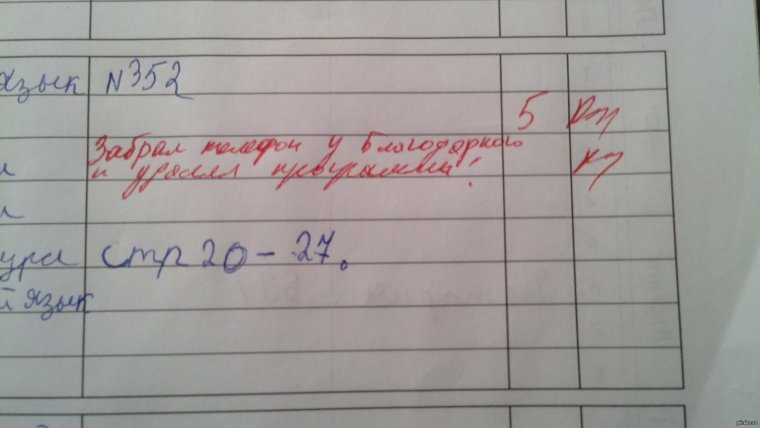 язык N352
5
Забрал телефон у Благодарного
и удалял программы!
ура стр 20-27.
й язык
pikabu.ru